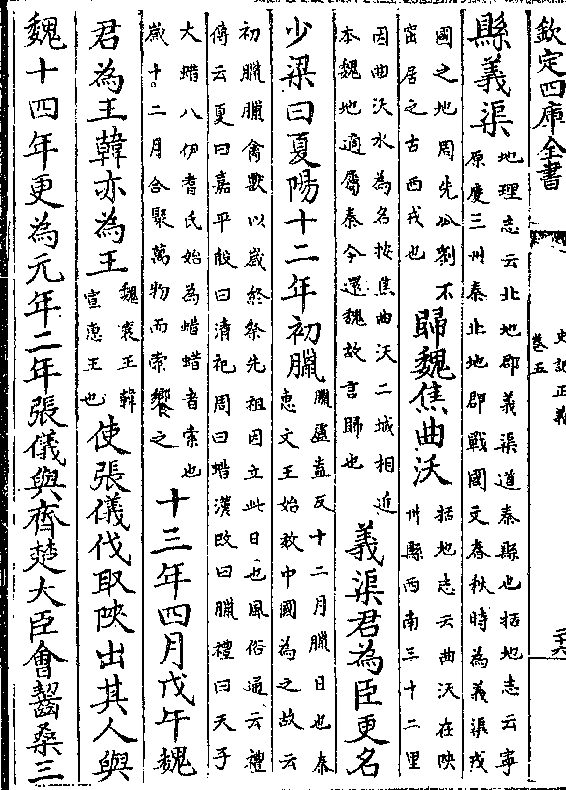 欽定四庫全書
史記正義
卷五
二六
縣義渠
地理志云北地郡義渠道秦縣也括地志云寧
原慶三州秦北地郡戰國及春秋時為義渠戎
國之地周先公劉不
窋居之古西戎也
歸魏焦曲沃
括地志云曲沃在陜
州縣西南三十二里
因曲沃水為名按焦曲沃二城相近
本魏地適屬秦今還魏故言歸也
義渠君為臣更名
少梁曰夏陽十二年初臘
臘盧盍反十二月臘日也秦
惠文王始效中國為之故云
初臘臘禽獸以歲終祭先祖因立此日也風俗通云禮
傳云夏曰嘉平殷曰清祀周曰蜡漢改曰臘禮曰天子
大蜡八伊耆氏始為蜡蜡者索也
歲十二月合聚萬物而索饗之
十三年四月戊午魏
君為王韓亦為王
魏襄王韓
宣惠王也
使張儀伐取陜出其人與
魏十四年更為元年二年張儀與齊楚大臣會齧桑三